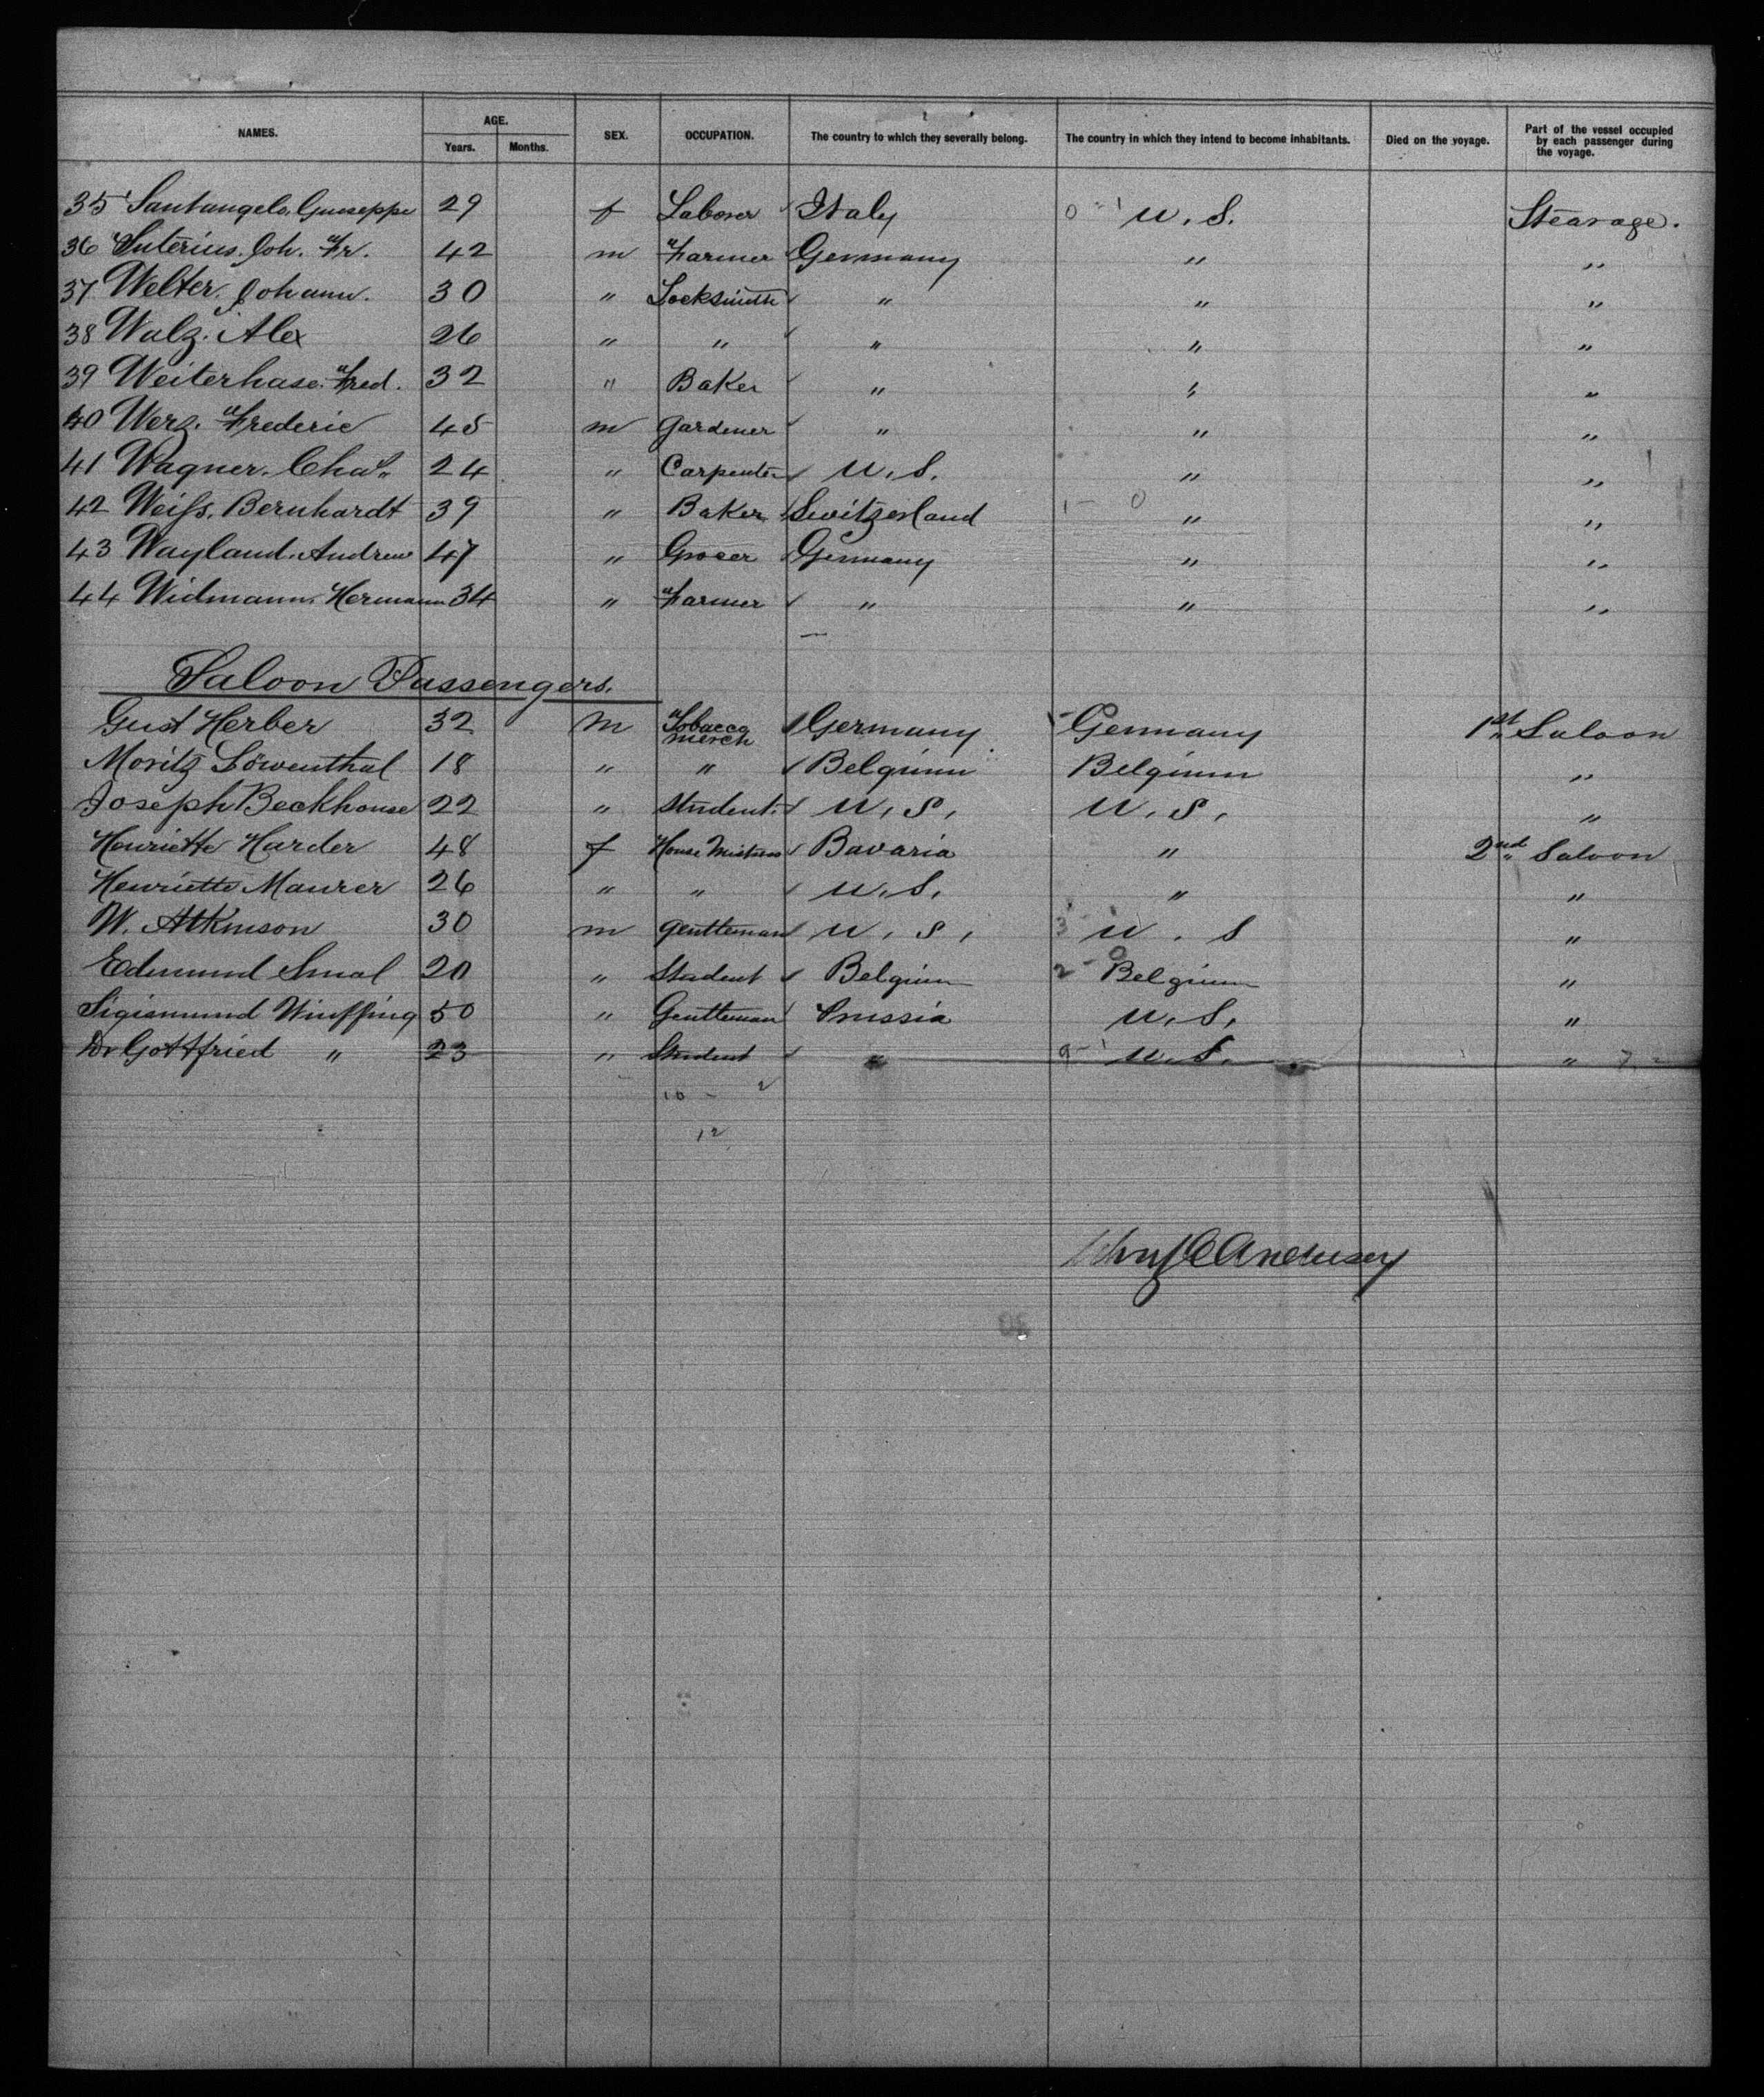 NAMES. AGE. Years. Months. SEX. OCCUPATION. The country to which they severally belong. The country in which they intend to become inhabitants. Died on the voyage. Part of the vessel occupied by each passenger during the voyage.
35 Santangelo, Guiseppe 29 f Laborer Italy 0 - 1 U. S. Stearage.
36 Suterius. Joh. Fr. 42 m Farmer Germany " "
37 Welter. Johann. 30 " Locksmith " " "
38 Walz. Alex 26 " " " " "
39 Weiterhase. Fred. 32 " Baker " " "
40 Werz. Frederic 45 m Gardener " " "
41 Wagner. Chas. 24 " Carpenter U. S. " "
42 Weiſs. Bernhardt 39 " Baker Switzerland 1 - 0 " "
43 Wayland. Andrew 47 " Grocer Germany " "
44 Widmann. Hermann 34 " Farmer " " "
Saloon Passengers.
Gust Herber 32 m Tobacco merch Germany Germany 1st Saloon
Moritz Löwenthal 18 " " Belgium Belgium "
Joseph Beckhouse 22 " Student. U. S. U. S. "
Henriette Harder 48 f House Mistress Bavaria " 2nd Saloon
Henriette Maurer 26 " " U. S. " "
W. Atkinson 30 m gentleman U. S. 3 U. S "
Edmund Smal 20 " Student Belgium 2 - 0 Belgium "
Sigismund 50 " Gentleman Prussia U. S. "
Dr Gottfried " 23 " Student " 9 - 1 U. S. "
10 - 2
12